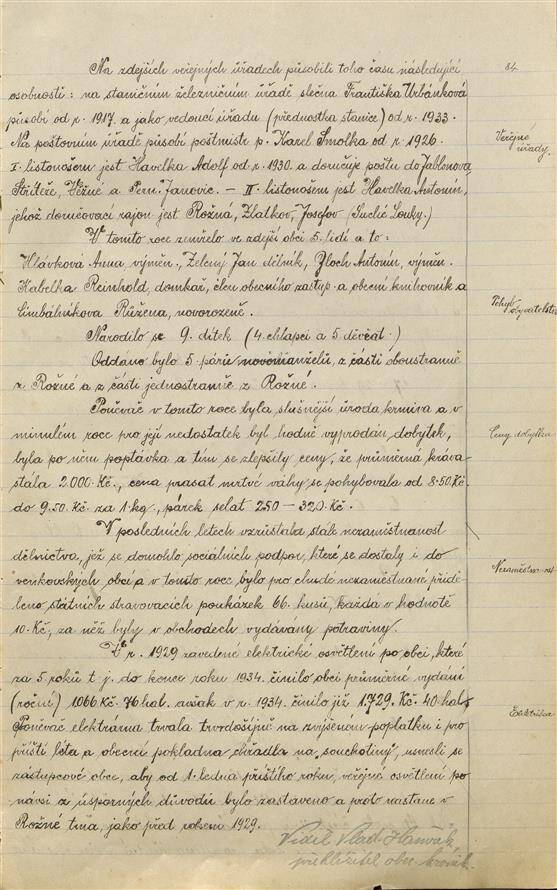 84.
Na zdejších veřejných úřadech působili toho času následující
osobnosti: na staničním železničním úřadě slečna Františka Urbánková
působí od r. 1917. a jako vedoucí úřadu (přednostka stanice) od r. 1933.
Na poštovním úřadě působí poštmistr p. Karel Smolka od r. 1926.
Veřejné
úřady.
I. listonošem jest Havelka Adolf od r. 1930. a doručuje poštu do Jablonova
Střítěže, Věžné a Pern. Janovic. – II. listonošem jest Havelka Antonín,
jehož doručovací rajon jest Rožná, Zlatkov, Josefov (Suché Louky.)
V tomto roce zemřelo ve zdejší obci 5. lidí a to:
Hlávková Anna výměn., Zelený Jan dělník, Zloch Antonín, výměn.
Habelka Reinhold, domkář, člen obecního zastup. a obecní knihovník a
Cimbálníkova Růžena, novorozeně.
Pohyb
obyvatelstva
Narodilo se 9. dítek (4. chlapci a 5 děvčat.)
Oddáno bylo 5 párů novomanželů, z části oboustranně
z Rožné a z části jednostranně z Rožné.
Poněvač v tomto roce byla slušnější úroda krmiva a v
minulém roce pro její nedostatek byl hodně vyprodán dobytek,
Ceny dobytka
byla po něm poptávka a tím se zlepšily ceny, že průměrná kráva
stála 2.000 Kč., cena prasat mrtvé váhy se pohybovala od 8.50 Kč.
do 9.50 Kč. za 1 kg., párek selat 250 – 320 Kč.
V posledních letech vzrůstala stále nezaměstnanost
dělnictva, jež se domohlo sociálních podpor, které se dostaly i do
venkovských obcí a v tomto roce bylo pro chudé nezaměstnané přidě-
Nezaměstnanost
leno státních stravovacích poukázek 66. kusů, každá v hodnotě
10. Kč, za něž byly v obchodech vydávány potraviny.
V r. 1929 zavedené elektrické osvětlení po obci, které
za 5 roků t. j. do konce roku 1934. činilo obci průměrné vydání
(roční) 1066 Kč. 76 hal. avšak v r. 1934. činilo již 1.729. Kč. 40 hal.
Elektrika
Poněvač elektrárna trvala tvrdošíjně na zvýšeném poplatku i pro
příští léta a obecní pokladna chřadla na „souchotiny", usnesli se
zástupcové obce, aby od 1. ledna příštího roku, veřejné osvětlení po
návsi z úsporných důvodů bylo zastaveno a proto nastane v
Rožné tma, jako před rokem 1929.
Viděl Vlad.
přehlížitel obec. kronik.